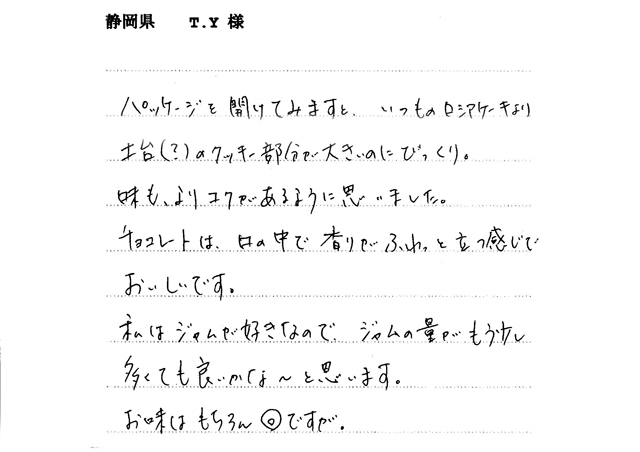 静岡県 T.Y 様
パッケージを開けてみますと、いつものロシアケーキより
土台(?)のクッキー部分が大きいのにびっくり。
味も、よりコクがあるように思いました。
チョコレートは、口の中で香りがふわっと立つ感じで
おいしいです。
私はジャムが好きなので、ジャムの量がもう少し
多くても良いかな〜と思います。
お味はもちろん◎ですが。